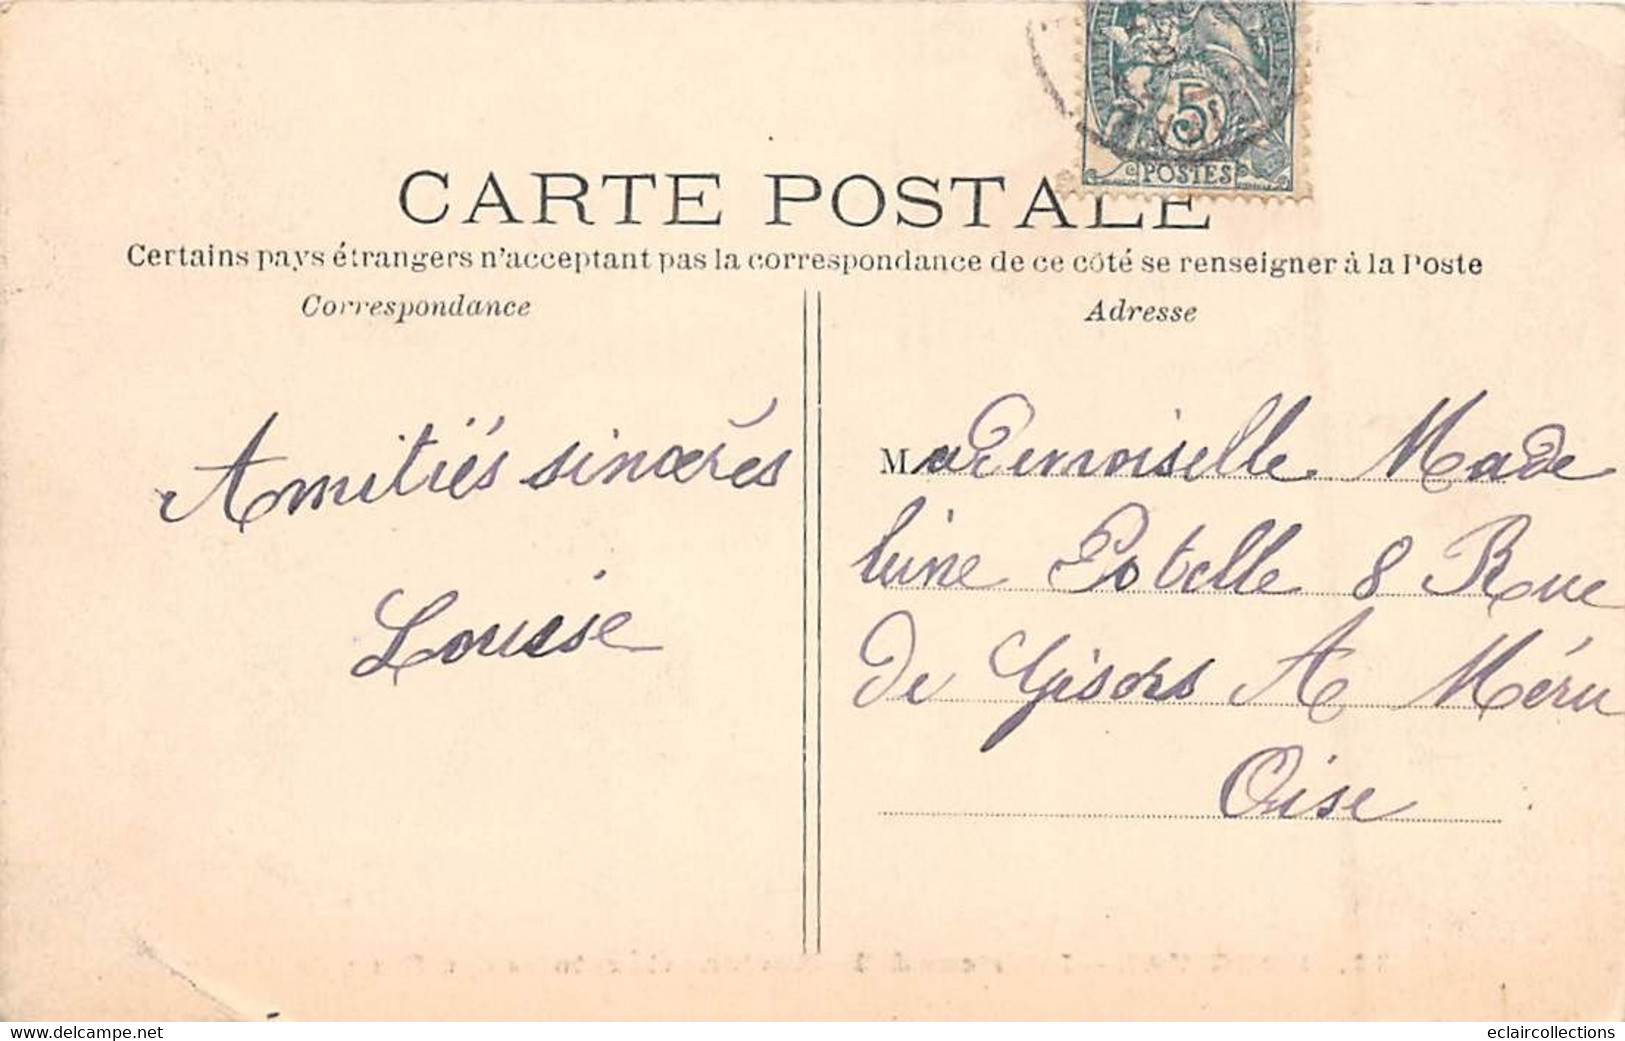 5c
POSTES
CARTE POSTALE
Certains pays étrangers n'acceptent pas la correspondance de ce côté se renseigner à la Poste
Correspondance
Amitiés sincères
Louise
Adresse
Mademoiselle Made
leine Potelle 8 Rue
de Gisors A Méru
Oise
www.delcampe.net
eclaircollections